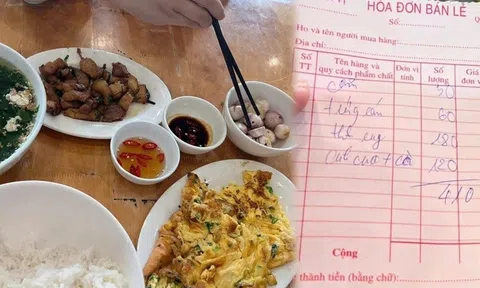 HÓA ĐƠN BÁN LẺ
Số:
Họ và tên người mua hàng:
Địa chỉ:
Số TT Tên hàng và quy cách phẩm chất Đơn vị tính Số lượng Giá đơn v
Cơm 50
trứng rán 60
thịt rang 180
Canh cua + cà 120
410
Cộng
thành tiền (bằng chữ):